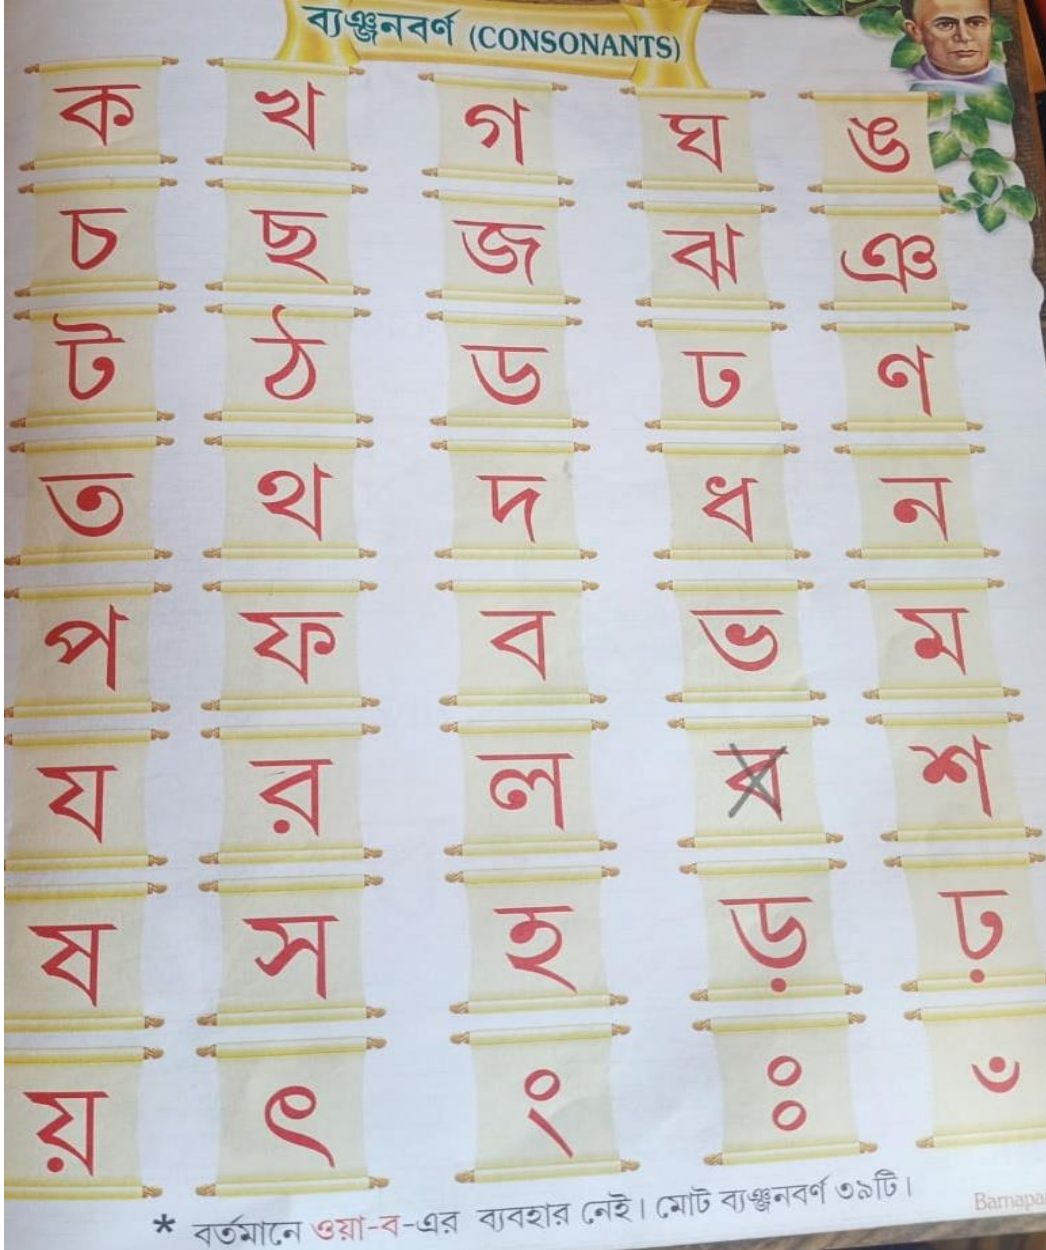 ব্যঞ্জনবর্ণ (CONSONANTS)
ক খ গ ঘ ঙ
চ ছ জ ঝ ঞ
ট ঠ ড ঢ ণ
ত থ দ ধ ন
প ফ ব ভ ম
য র ল ব শ
ষ স হ ড় ঢ়
য় ৎ ং ঃ ঁ
* বর্তমানে ওয়া-ব-এর ব্যবহার নেই। মোট ব্যঞ্জনবর্ণ ৩৯টি।